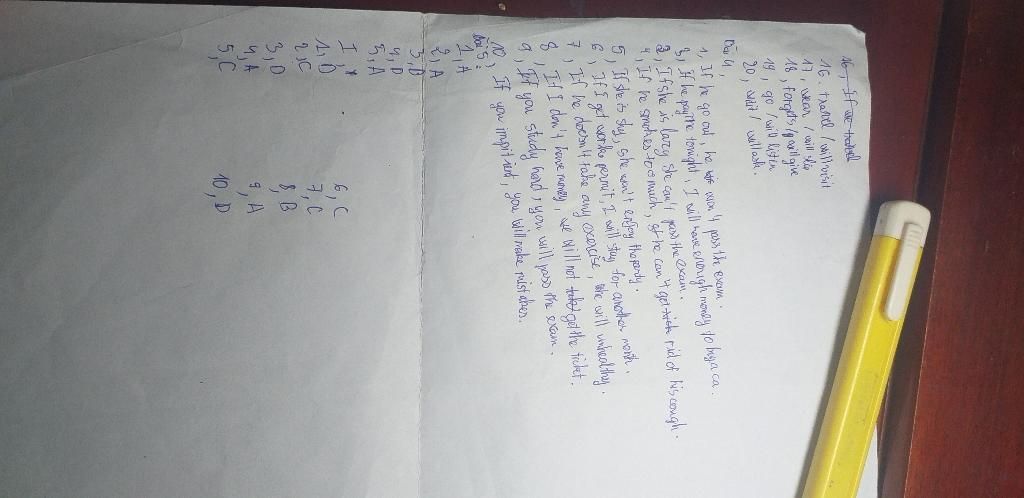 16, If we travel
16. travel / will visit
17, wear / will slip
18, forgets / will give
19, go / will listen
20, will / will ask.
Bài 4,
1, If he go out, he won't pass the exam.
3, If he pay me tonight, I will have enough money to buy a ca.
2, If she is lazy she can't pass the exam.
4, If he smokes too much, he can't get rid of his cough.
5, If she is shy, she won't enjoy the party.
6, If I get works permit, I will stay for another month.
7, If he doesn't take any exercise, he will unhealthy.
8, If I don't have money, we will not get the ticket.
9, If you study hard, you will pass the exam.
10, If you impatient, you will make mistakes.
Bài 5:
1, A
2, A
3, D
4, D
5, A
I,
1, D
2, C
3, D
4, A
5, C
6, C
7, C
8, B
9, A
10, D